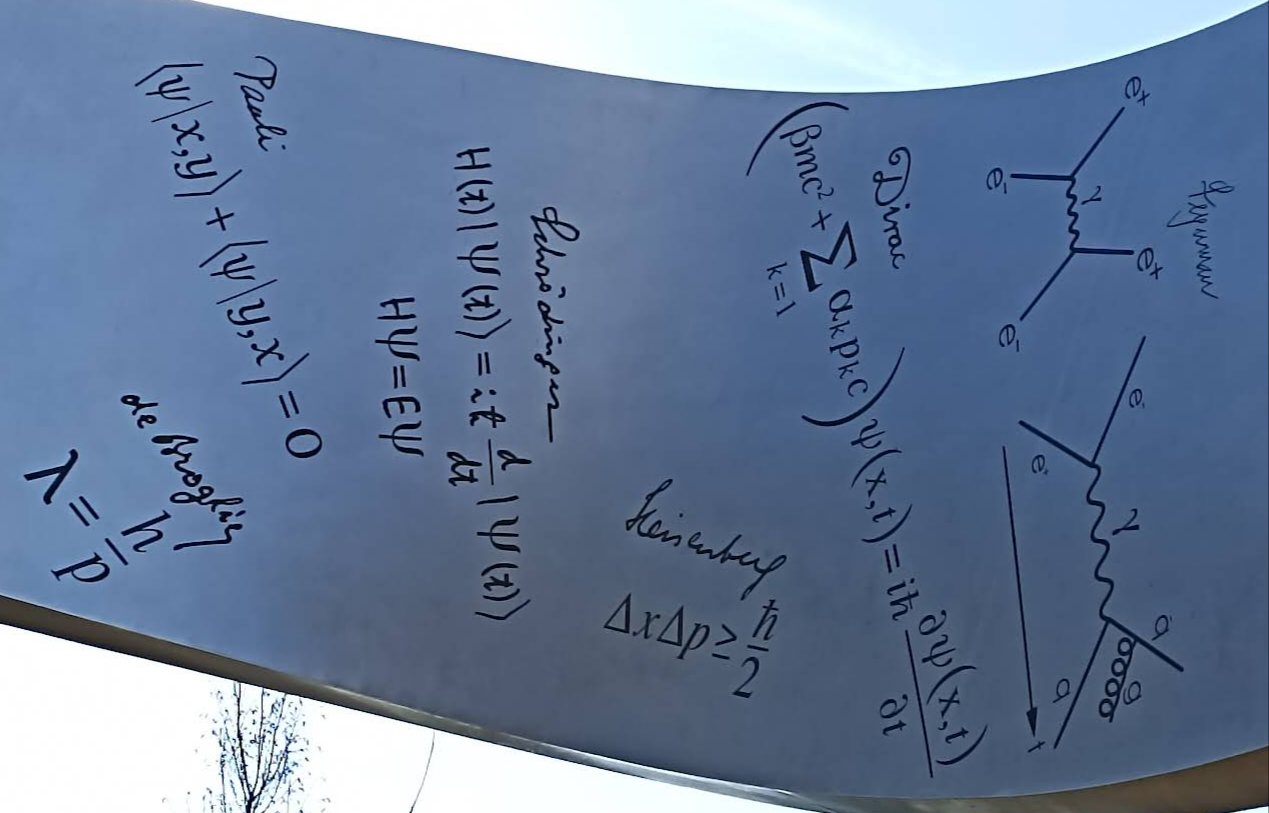 Feynman
e⁺ e⁺
γ
e⁻ e⁻
e⁻ q̄
γ g
e⁺ q
t
Dirac
(βmc² + Σ αₖpₖc) ψ(x,t) = iħ ∂ψ(x,t)
k=1 ∂t
Heisenberg
ΔxΔp ≥ ħ/2
Schrödinger
H(t)|ψ(t)⟩ = iħ d/dt |ψ(t)⟩
Hψ = Eψ
Pauli
⟨ψ|x,y⟩ + ⟨ψ|y,x⟩ = 0
de Broglie
λ = h/p